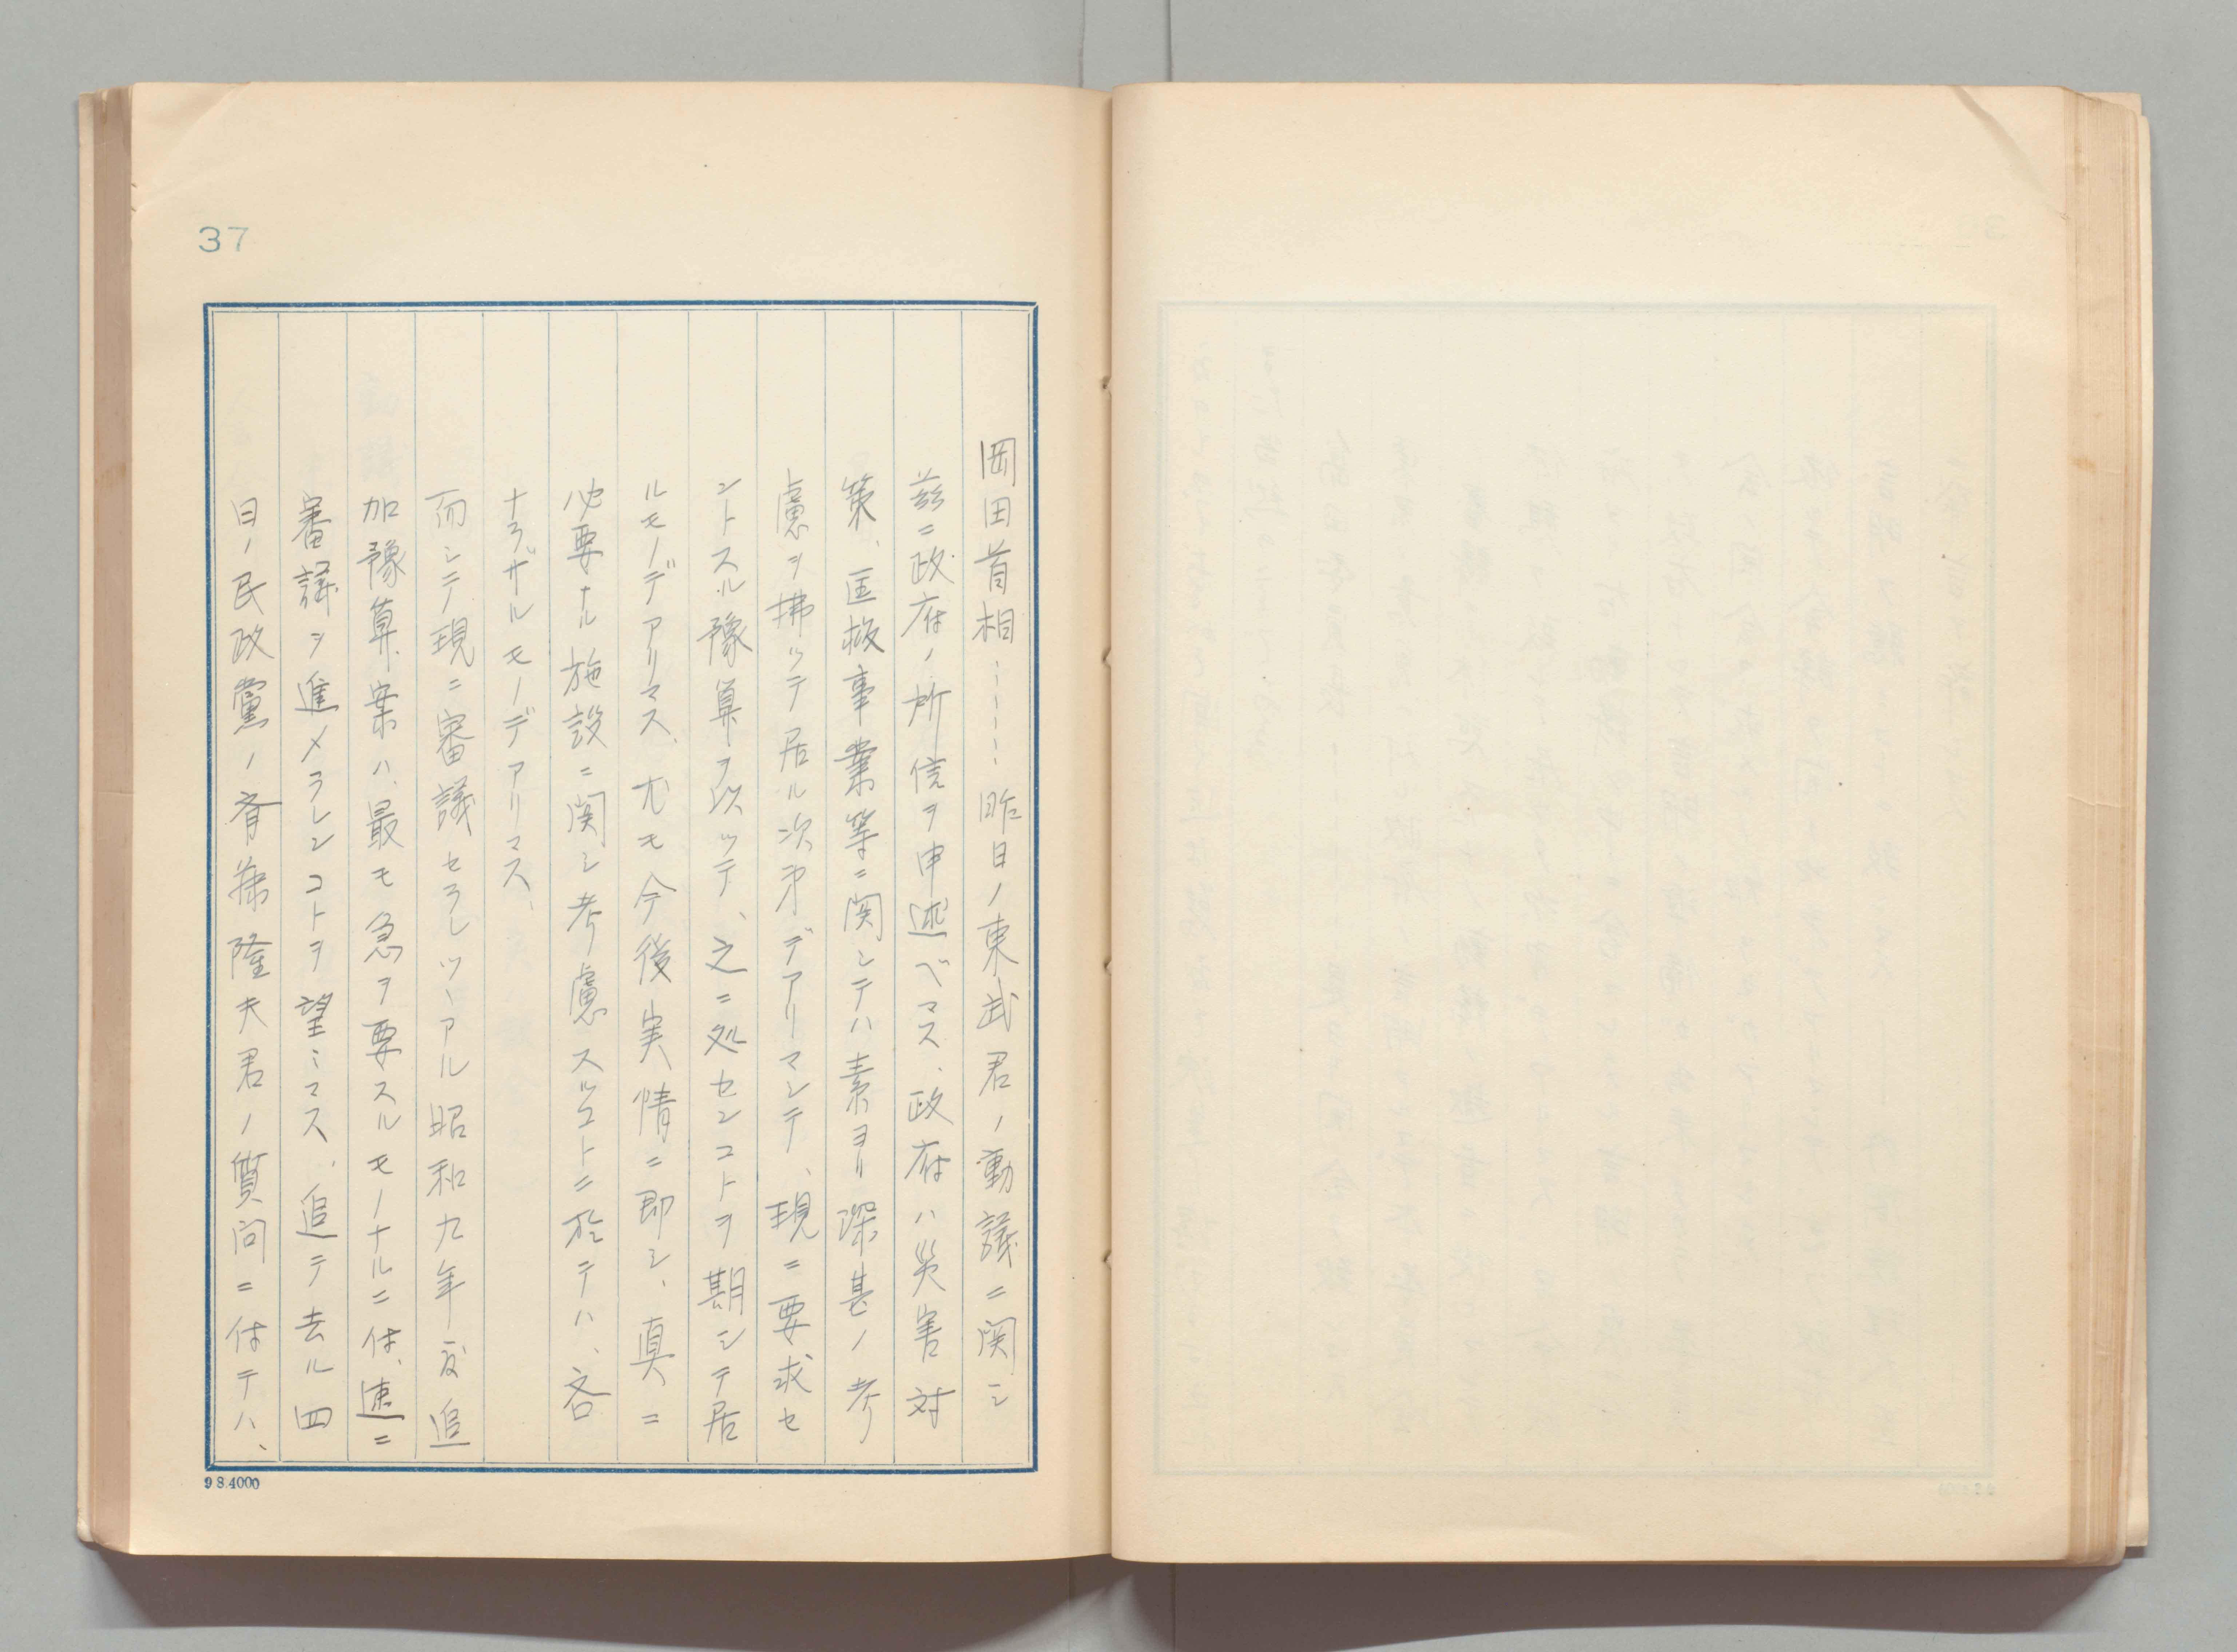 37
岡田首相……昨日ノ東武君ノ動議ニ関シ
茲ニ政府ノ所信ヲ申述ベマス、政府ハ災害対
策、匡救事業等ニ関シテハ素ヨリ深甚ノ考
慮ヲ拂ッテ居ル次第デアリマシテ、現ニ要求セ
ントスル豫算ヲ以ッテ、之ニ処センコトヲ期シテ居
ルモノデアリマス、尤モ今後実情ニ即シ、真ニ
必要ナル施設ニ関シ考慮スルコトニ於テハ、吝
ナラザルモノデアリマス、
而シテ現ニ審議セラレツヽアル昭和九年度追
加豫算案ハ、最モ急ヲ要スルモノナルニ付、速ニ
審議ヲ進メラレンコトヲ望ミマス、追テ去ル四
日ノ民政黨ノ斉藤隆夫君ノ質問ニ付テハ、
9.8.4000